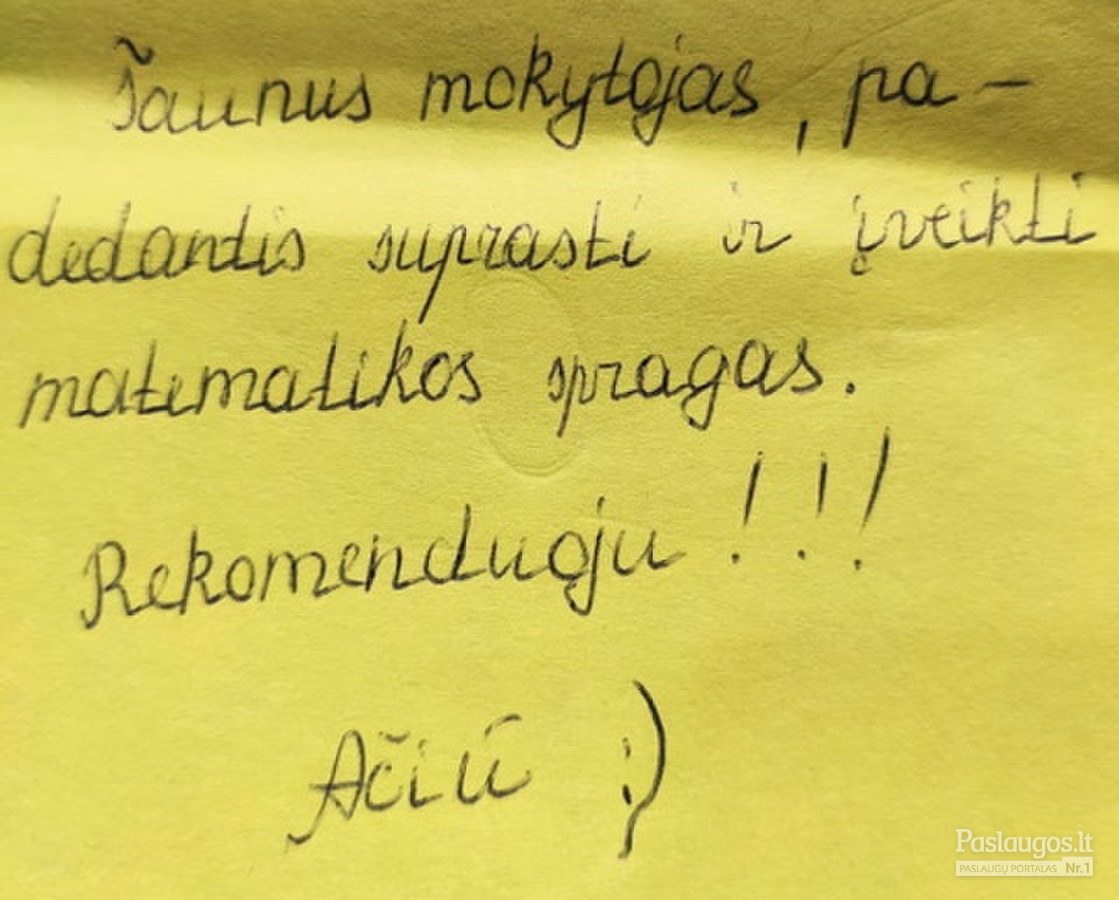 Šaunus mokytojas, pa-
dedantis suprasti ir įveikti
matematikos spragas.
Rekomenduoju!!!
Ačiū :)
Paslaugos.lt
PASLAUGŲ PORTALAS Nr.1